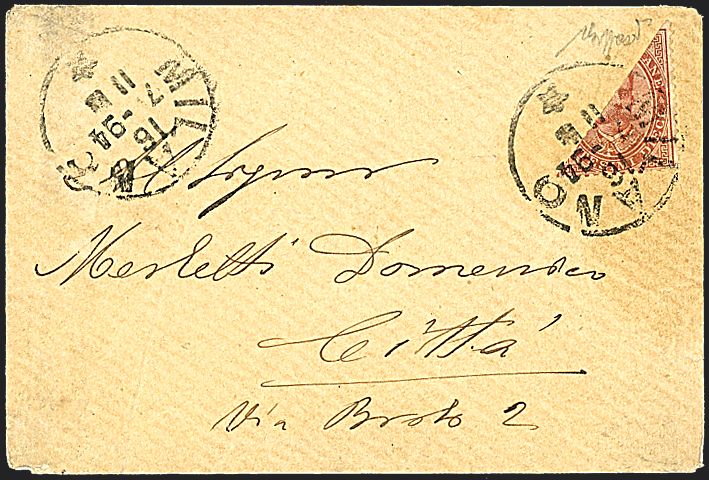 MILANO
16
7-94
11 M
MILANO
16
7-94
11 M
Al Signor
Merletti Domenico
Città
Via Broto 2